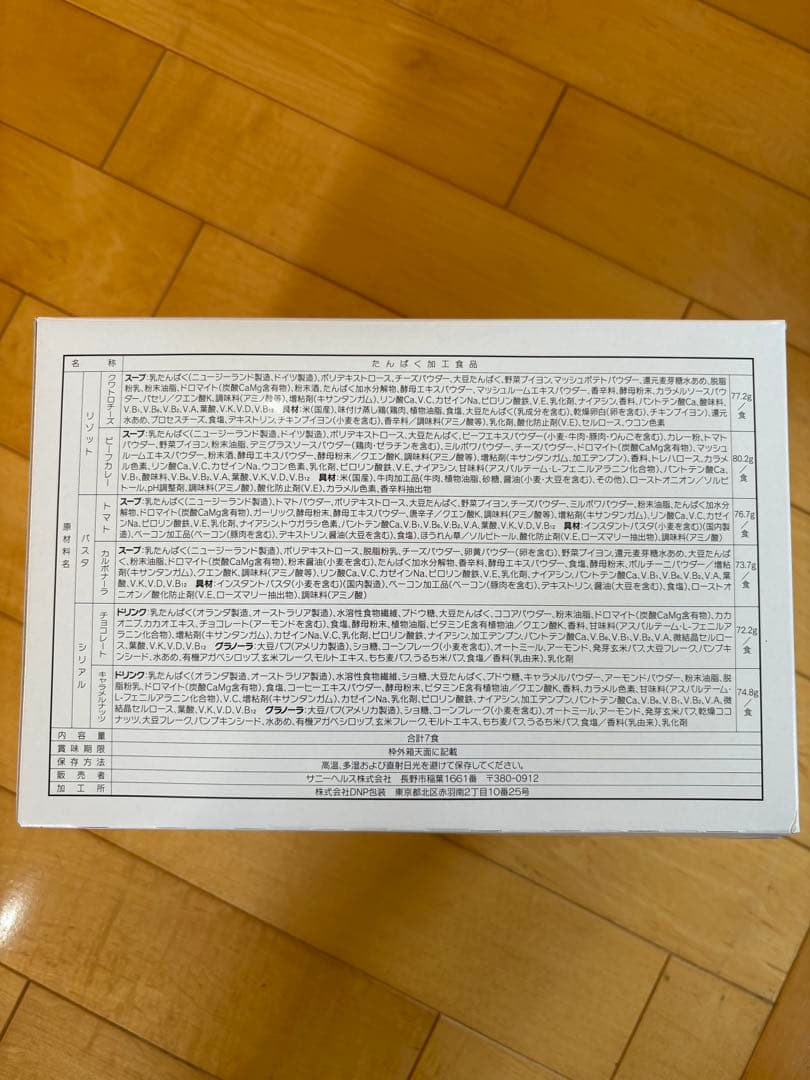 名 称 たんぱく加工食品
原材料名
リゾット
クワトロチーズ
スープ:乳たんぱく(ニュージーランド製造、ドイツ製造)、ポリデキストロース、チーズパウダー、大豆たんぱく、野菜ブイヨン、マッシュポテトパウダー、還元麦芽糖水あめ、脱脂
粉乳、粉末油脂、ドロマイト(炭酸CaMg含有物)、粉末酒、たんぱく加水分解物、酵母エキスパウダー、マッシュルームエキスパウダー、香辛料、酵母粉末、カラメルソースパウ
ダー、パセリ/クエン酸K、調味料(アミノ酸等)、増粘剤(キサンタンガム)、リン酸Ca、V.C、カゼインNa、ピロリン酸鉄、V.E、乳化剤、ナイアシン、香料、パントテン酸Ca、酸味料、
V.B₁、V.B₆、V.B₂、V.A、葉酸、V.K、V.D、V.B₁₂ 具材:米(国産)、味付け蒸し鶏(鶏肉、植物油脂、食塩、大豆たんぱく(乳成分を含む)、乾燥卵白(卵を含む)、チキンブイヨン)、還元
水あめ、プロセスチーズ、食塩、デキストリン、チキンブイヨン(小麦を含む)、香辛料/調味料(アミノ酸等)、乳化剤、酸化防止剤(V.E)、セルロース、ウコン色素
77.2g/食
ビーフカレー
スープ:乳たんぱく(ニュージーランド製造、ドイツ製造)、ポリデキストロース、大豆たんぱく、ビーフエキスパウダー(小麦・牛肉・豚肉・りんごを含む)、カレー粉、トマト
パウダー、野菜ブイヨン、粉末油脂、デミグラスソースパウダー(鶏肉・ゼラチンを含む)、ミルポワパウダー、チーズパウダー、ドロマイト(炭酸CaMg含有物)、マッシュ
ルームエキスパウダー、粉末酒、酵母エキスパウダー、酵母粉末/クエン酸K、調味料(アミノ酸等)、増粘剤(キサンタンガム、加工デンプン)、香料、トレハロース、カラメ
ル色素、リン酸Ca、V.C、カゼインNa、ウコン色素、乳化剤、ピロリン酸鉄、V.E、ナイアシン、甘味料(アスパルテーム・L-フェニルアラニン化合物)、パントテン酸Ca、
V.B₁、酸味料、V.B₆、V.B₂、V.A、葉酸、V.K、V.D、V.B₁₂ 具材:米(国産)、牛肉加工品(牛肉、植物油脂、砂糖、醤油(小麦・大豆を含む)、その他)、ローストオニオン/ソルビ
トール、pH調整剤、調味料(アミノ酸)、酸化防止剤(V.E)、カラメル色素、香辛料抽出物
80.2g/食
パスタ
トマト
スープ:乳たんぱく(ニュージーランド製造)、トマトパウダー、ポリデキストロース、大豆たんぱく、野菜ブイヨン、チーズパウダー、ミルポワパウダー、粉末油脂、たんぱく加水分
解物、ドロマイト(炭酸CaMg含有物)、ガーリック、酵母粉末、酵母エキスパウダー、唐辛子/クエン酸K、調味料(アミノ酸等)、増粘剤(キサンタンガム)、リン酸Ca、V.C、カゼイ
ンNa、ピロリン酸鉄、V.E、乳化剤、ナイアシン、トウガラシ色素、パントテン酸Ca、V.B₁、V.B₆、V.B₂、V.A、葉酸、V.K、V.D、V.B₁₂ 具材:インスタントパスタ(小麦を含む)(国内製
造)、ベーコン加工品(ベーコン(豚肉を含む)、デキストリン、醤油(大豆を含む)、食塩)、ほうれん草/ソルビトール、酸化防止剤(V.E、ローズマリー抽出物)、調味料(アミノ酸)
76.7g/食
カルボナーラ
スープ:乳たんぱく(ニュージーランド製造)、ポリデキストロース、脱脂粉乳、チーズパウダー、卵黄パウダー(卵を含む)、野菜ブイヨン、還元麦芽糖水あめ、大豆たんぱ
く、粉末油脂、ドロマイト(炭酸CaMg含有物)、粉末醤油(小麦を含む)、たんぱく加水分解物、香辛料、酵母エキスパウダー、食塩、酵母粉末、ポルチーニパウダー/増粘
剤(キサンタンガム)、クエン酸K、調味料(アミノ酸等)、リン酸Ca、V.C、カゼインNa、ピロリン酸鉄、V.E、乳化剤、ナイアシン、パントテン酸Ca、V.B₁、V.B₆、V.B₂、V.A、葉
酸、V.K、V.D、V.B₁₂ 具材:インスタントパスタ(小麦を含む)(国内製造)、ベーコン加工品(ベーコン(豚肉を含む)、デキストリン、醤油(大豆を含む)、食塩)、ローストオ
ニオン/酸化防止剤(V.E、ローズマリー抽出物)、調味料(アミノ酸)
73.7g/食
シリアル
チョコレート
ドリンク:乳たんぱく(オランダ製造、オーストラリア製造)、水溶性食物繊維、ブドウ糖、大豆たんぱく、ココアパウダー、粉末油脂、ドロマイト(炭酸CaMg含有物)、カカ
オニブ、カカオエキス、チョコレート(アーモンドを含む)、食塩、酵母粉末、植物油脂、ビタミンE含有植物油/クエン酸K、香料、甘味料(アスパルテーム・L-フェニルアラ
ニン化合物)、増粘剤(キサンタンガム)、カゼインNa、V.C、乳化剤、ピロリン酸鉄、ナイアシン、加工デンプン、パントテン酸Ca、V.B₆、V.B₁、V.B₂、V.A、微結晶セルロー
ス、葉酸、V.K、V.D、V.B₁₂ グラノーラ:大豆パフ(アメリカ製造)、ショ糖、コーンフレーク(小麦を含む)、オートミール、アーモンド、発芽玄米パフ、大豆フレーク、パンプキ
ンシード、水あめ、有機アガベシロップ、玄米フレーク、モルトエキス、もち麦パフ、うるち米パフ、食塩/香料(乳由来)、乳化剤
72.2g/食
キャラメルナッツ
ドリンク:乳たんぱく(オランダ製造、オーストラリア製造)、水溶性食物繊維、ショ糖、大豆たんぱく、ブドウ糖、キャラメルパウダー、アーモンドパウダー、粉末油脂、脱
脂粉乳、ドロマイト(炭酸CaMg含有物)、食塩、コーヒーエキスパウダー、酵母粉末、ビタミンE含有植物油/クエン酸K、香料、カラメル色素、甘味料(アスパルテーム・
L-フェニルアラニン化合物)、V.C、増粘剤(キサンタンガム)、カゼインNa、乳化剤、ピロリン酸鉄、ナイアシン、加工デンプン、パントテン酸Ca、V.B₆、V.B₁、V.B₂、V.A、微
結晶セルロース、葉酸、V.K、V.D、V.B₁₂ グラノーラ:大豆パフ(アメリカ製造)、ショ糖、コーンフレーク(小麦を含む)、オートミール、アーモンド、発芽玄米パフ、乾燥ココ
ナッツ、大豆フレーク、パンプキンシード、水あめ、有機アガベシロップ、玄米フレーク、モルトエキス、もち麦パフ、うるち米パフ、食塩/香料(乳由来)、乳化剤
74.8g/食
内容量 合計7食
賞味期限 枠外箱天面に記載
保存方法 高温、多湿および直射日光を避けて保存してください。
販売者 サニーヘルス株式会社 長野市稲葉1661番 〒380-0912
加工所 株式会社DNP包装 東京都北区赤羽南2丁目10番25号